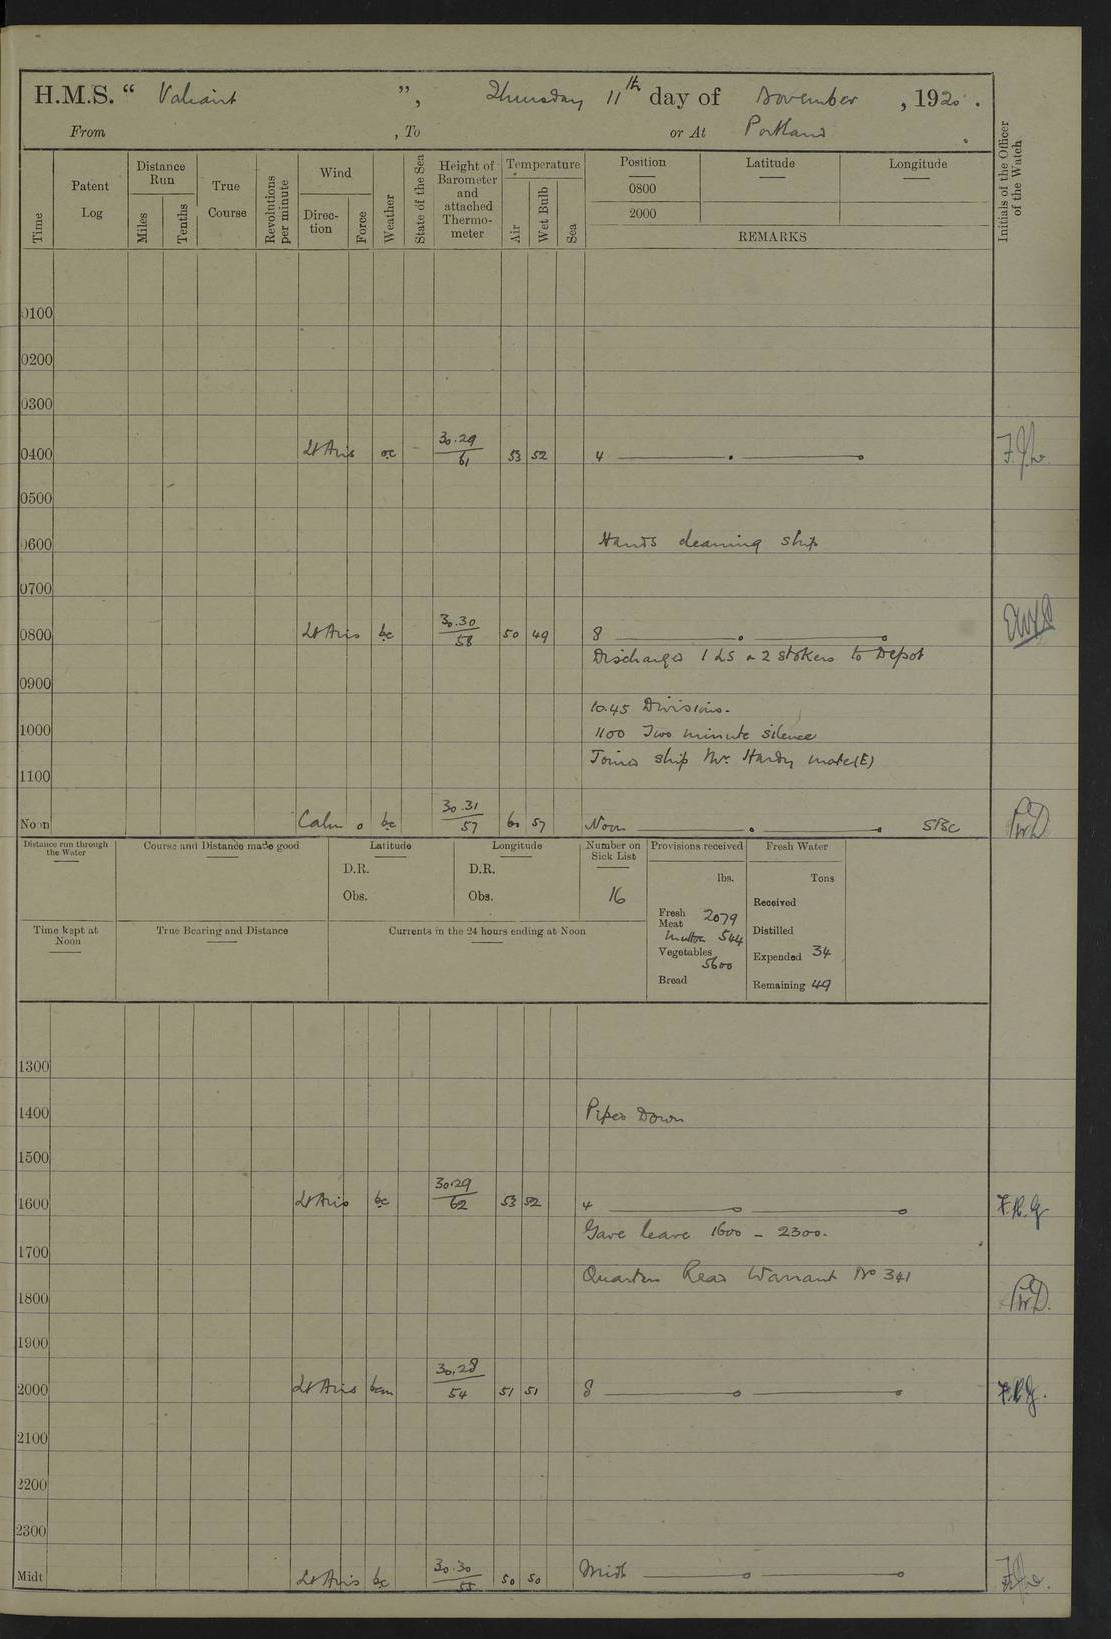 H.M.S. “ Valiant ”, Thursday 11th day of November , 1920 .
From , To or At Portland .
Time
Patent Log
Distance Run
Miles
Tenths
True Course
Revolutions per minute
Wind
Direc-tion
Force
Weather
State of the Sea
Height of Barometer and attached Thermo-meter
Temperature
Air
Wet Bulb
Sea
Position
Latitude
Longitude
0800
2000
REMARKS
Initials of the Officer of the Watch
0100
0200
0300
0400 Lt Airs oc 30.29 61 53 52 4
0500
0600 Hands cleaning ship
0700
0800 Lt Airs bc 30.30 58 50 49 8
Discharged 1 LS & 2 stokers to Depot
0900
10.45 Divisions.
1000 1100 Two minute silence
Joined ship Mr Hardy mate(E)
1100
Noon Calm 0 bc 30.31 57 60 57 Noon SBC PWD
Distance run through the Water
Course and Distance made good
Latitude
D.R.
Obs.
Longitude
D.R.
Obs.
Number on Sick List
16
Provisions received
lbs.
Fresh Meat 2079
Mutton 544
Vegetables 5600
Bread
Fresh Water
Tons
Received
Distilled
Expended 34
Remaining 49
Time kept at Noon
True Bearing and Distance
Currents in the 24 hours ending at Noon
1300
1400 Piped Down
1500
1600 Lt Airs bc 30.29 62 53 52 4
Gave leave 1600 - 2300.
1700
Quarters Read Warrant No 341
1800 PWD.
1900
2000 Lt Airs bcm 30.28 54 51 51 8
2100
2200
2300
Midt Lt Airs bc 30.30 55 50 50 Midt